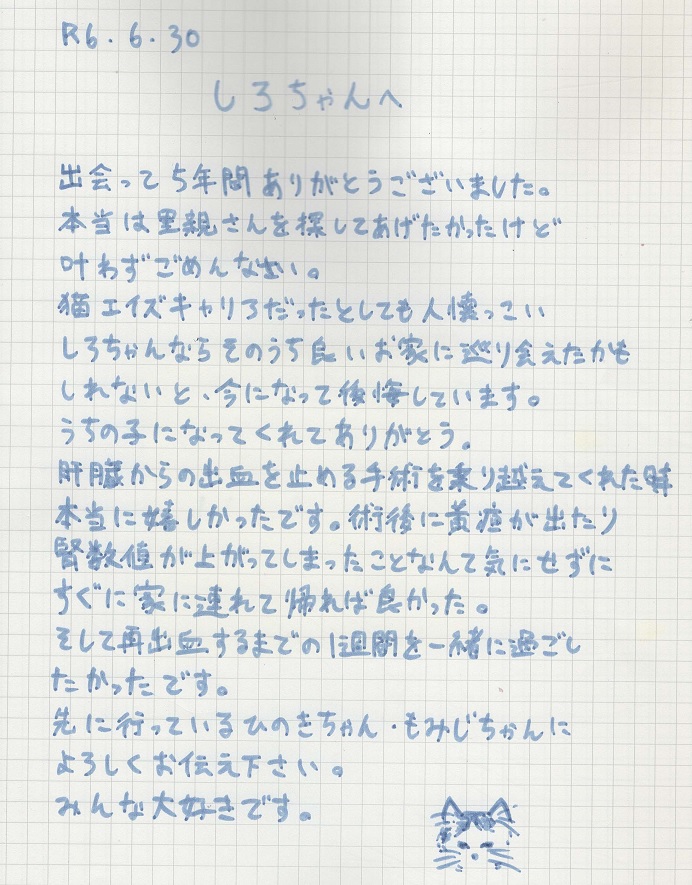 R6.6.30
しろちゃんへ
出会って5年間ありがとうございました。
本当は里親さんを探してあげたかったけど
叶わずごめんなさい。
猫エイズキャリアだったとしても人懐っこい
しろちゃんならそのうち良いお家に巡り会えたかも
しれないと、今になって後悔しています。
うちの子になってくれてありがとう。
肝臓からの出血を止める手術を乗り越えてくれた時
本当に嬉しかったです。術後に黄疸が出たり
腎数値が上がってしまったことなんて気にせずに
すぐに家に連れて帰れば良かった。
そして再出血するまでの1週間を一緒に過ごし
たかったです。
先に行っているひのきちゃん・もみじちゃんに
よろしくお伝え下さい。
みんな大好きです。